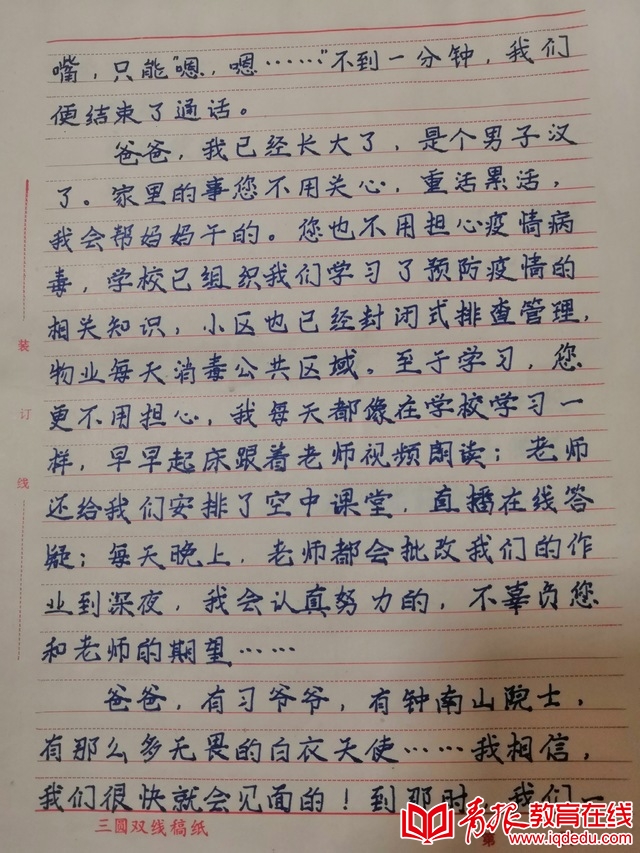 嘴，只能“嗯，嗯……”不到一分钟，我们
便结束了通话。
爸爸，我已经长大了，是个男子汉
了。家里的事您不用关心，重活累活，
我会帮妈妈干的。您也不用担心疫情病
毒，学校已组织我们学习了预防疫情的
相关知识，小区也已经封闭式排查管理，
物业每天消毒公共区域。至于学习，您
更不用担心，我每天都像在学校学习一
样，早早起床跟着老师视频朗读；老师
还给我们安排了空中课堂，直播在线答
疑；每天晚上，老师都会批改我们的作
业到深夜，我会认真努力的，不辜负您
和老师的期望……
爸爸，有习爷爷，有钟南山院士，
有那么多无畏的白衣天使……我相信，
我们很快就会见面的！到那时，我们一
装
订
线
三圆双线稿纸
第
青报教育在线
www.iqdedu.com